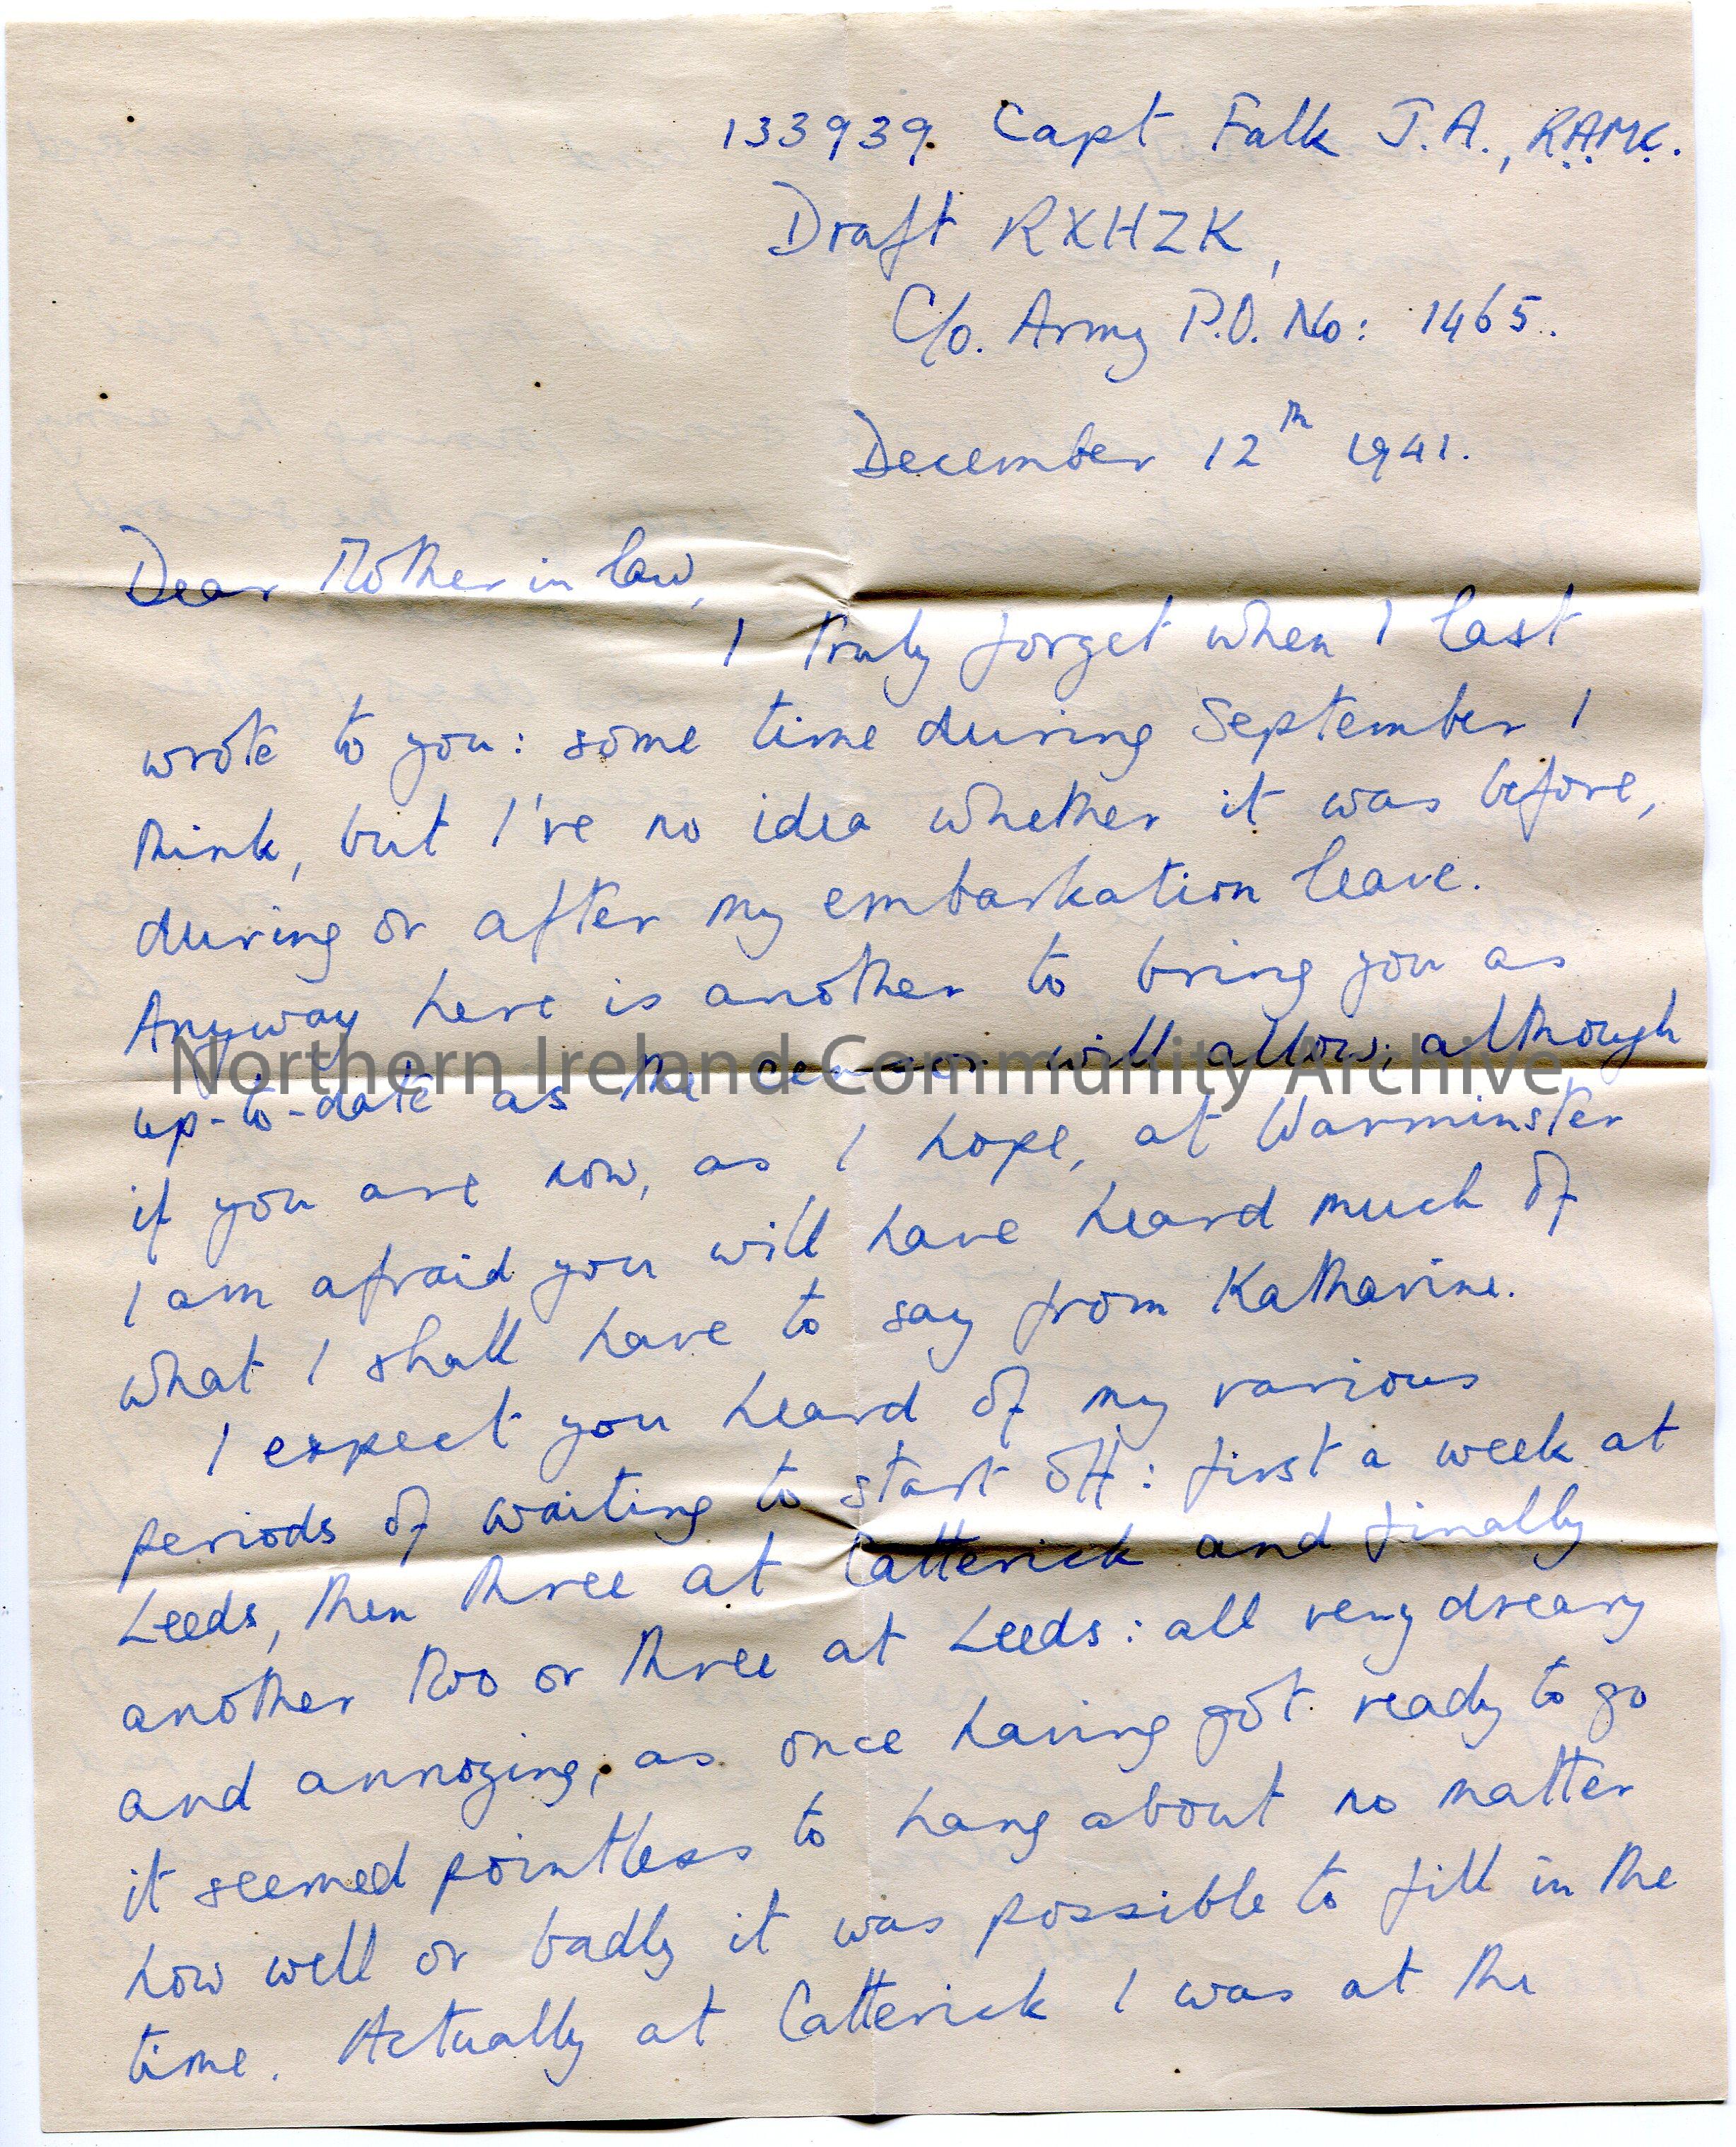 133939. Capt Falk J.A., R.A.M.C.
Draft RXHZK,
C/o. Army P.O. No: 1465.
December 12th 1941.
Dear Mother in law,
I truly forget when I last
wrote to you: some time during September I
think, but I've no idea whether it was before,
during or after my embarkation leave.
Anyway here is another to bring you as
up-to-date as the censor will allow; although
Northern Ireland Community Archive
if you are now, as I hope, at Warminster
I am afraid you will have heard much of
what I shall have to say from Katharine.
I expect you heard of my various
periods of waiting to start off: first a week at
Leeds, then three at Catterick and finally
another two or three at Leeds: all very dreary
and annoying, as once having got ready to go
it seemed pointless to hang about no matter
how well or badly it was possible to fill in the
time. Actually at Catterick I was at the